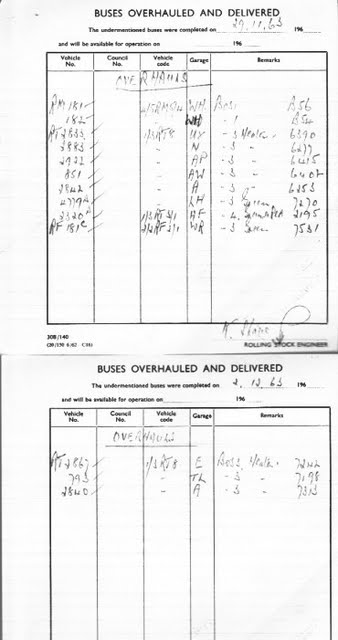 BUSES OVERHAULED AND DELIVERED
The undermentioned buses were completed on 29.11.63 196
and will be available for operation on 196
Vehicle No. Council No. Vehicle code Garage Remarks
OVERHAULS
RM 181 WH B56
182 B54
RT 2833 1/3RT8 3 Heater 6390
3883 - N - 3 - 6277
2922 - AP - 3 - 6415
851 - AW - 3 - 6402
2842 - A - 3 6253
4779 - LH - 3 7270
2320 1/3 RT 3/1 AF 2195
RF 181 2/2RF 2/1 WR - 3 7531
308/140
ROLLING STOCK ENGINEER
BUSES OVERHAULED AND DELIVERED
The undermentioned buses were completed on 2.12.63 196
and will be available for operation on 196
Vehicle No. Council No. Vehicle code Garage Remarks
OVERHAULS
RT 2867 1/3RT8 E Bo S3 Heater 7242
793 - TL - 3 - 7198
2840 - A - 3 - 7313